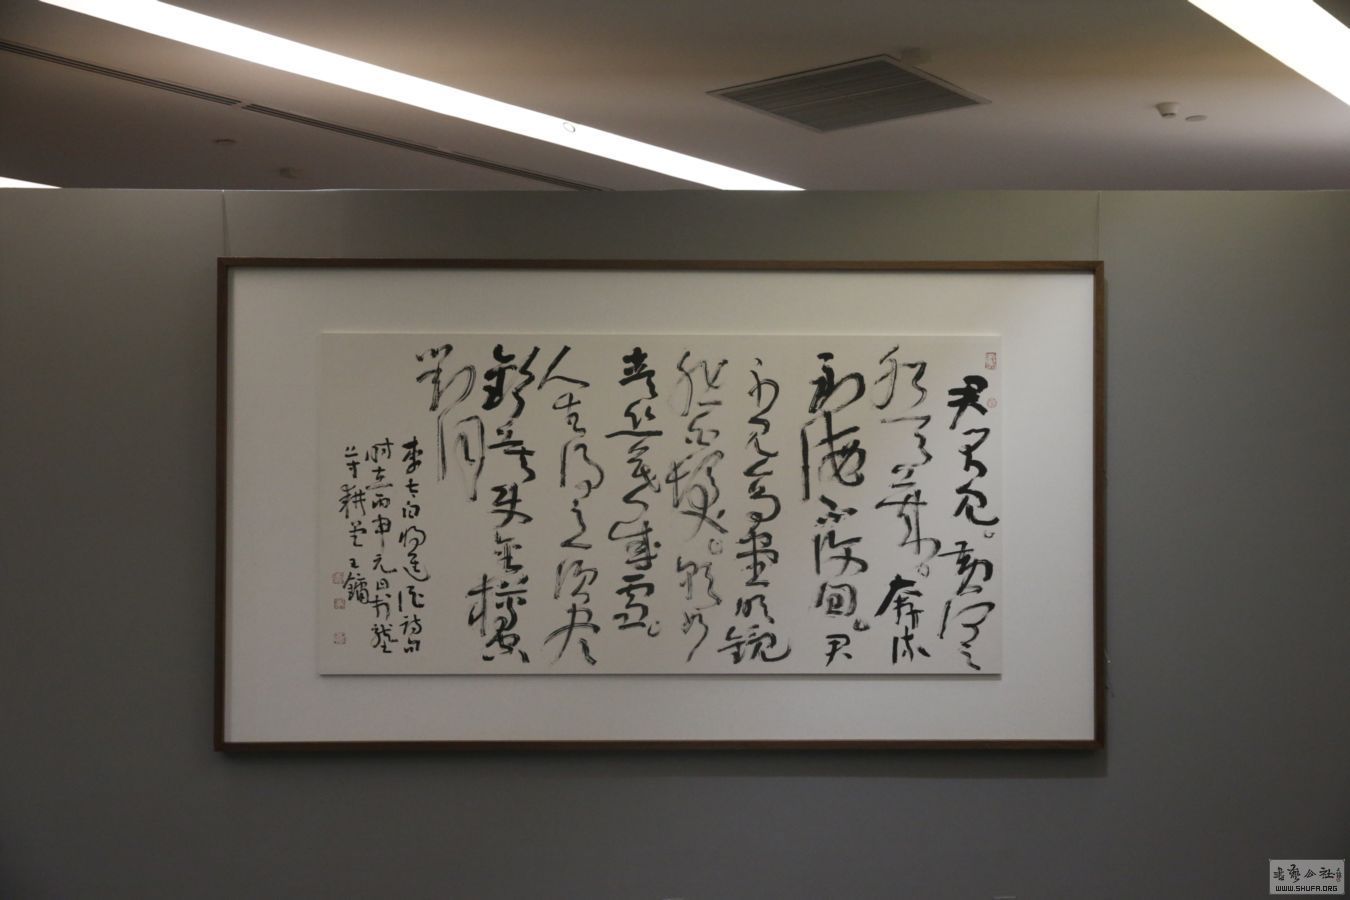 君不见黄河之
水天上来奔流
到海不复回君
不见高堂明镜
悲白发朝如
青丝暮成雪
人生得意须尽
欢莫使金樽空
對月
李太白将进酒诗句
时在丙申元旦于
王镛
书艺公社
WWW.SHUFA.ORG